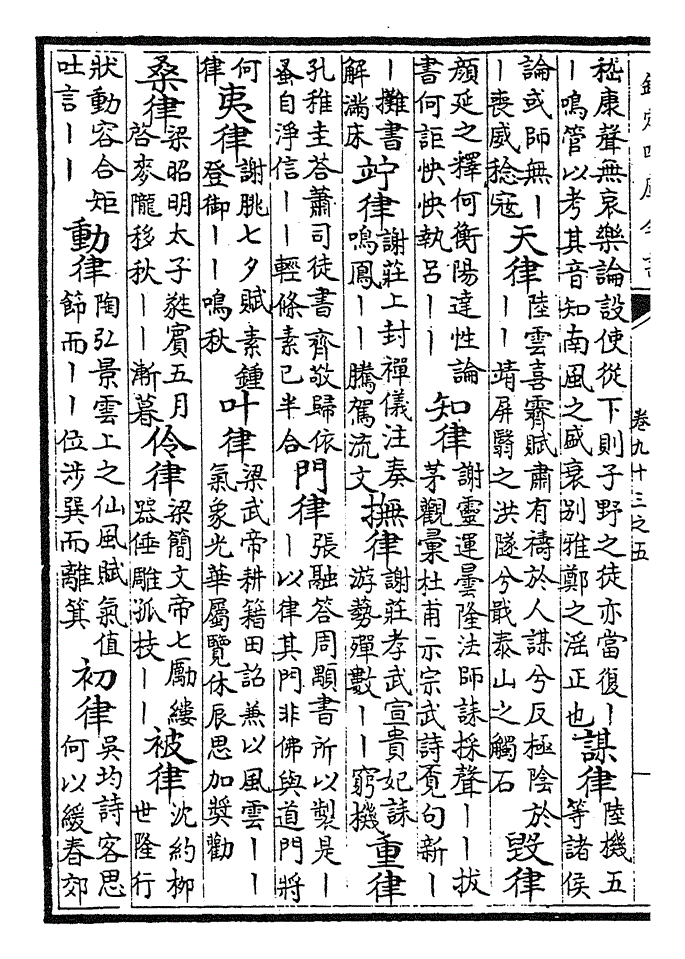 欽定四庫全書
卷九十三之五
嵇康聲無哀樂論設使從下則子野之徒亦當復丨丨鳴管以考其音知南風之盛衰别雅鄭之淫正也 謀律 陸機五等諸侯
論或師無丨丨喪威稔冦 天律 陸雲喜霽賦肅有禱於人謀兮反極陰於丨丨靖屏翳之洪隧兮戢泰山之觸石 毁律
顔延之釋何衡陽達性論書何詎怏怏執呂丨丨 知律 謝靈運曇隆法師誄採聲丨丨拔茅觀彙杜甫示宗武詩覔句新丨
丨攤書解滿床 竚律 謝莊上封禪儀注奏鳴鳳丨丨騰駕流文 撫律 謝莊孝武宣貴妃誄游藝殫數丨丨窮機 重律
孔稚圭荅蕭司徒書齊敬歸依蚤自淨信丨丨輕條素已半合 門律 張融答周顒書所以製是丨丨以律其門非佛與道門將
何律 夷律 謝朓七夕賦素鍾登御丨丨鳴秋 叶律 梁武帝耕籍田詔兼以風雲丨丨氣象光華屬覽休辰思加奬勸
桑律 梁昭明太子蕤賓五月啓麥隴移秋丨丨漸暮 伶律 梁簡文帝七勵縷器倕雕孤枝丨丨 被律 沈約柳世隆行
狀動容合矩吐言丨丨 動律 陶弘景雲上之仙風賦氣值節而丨丨位涉巽而離箕 初律 吳均詩客思何以緩春郊